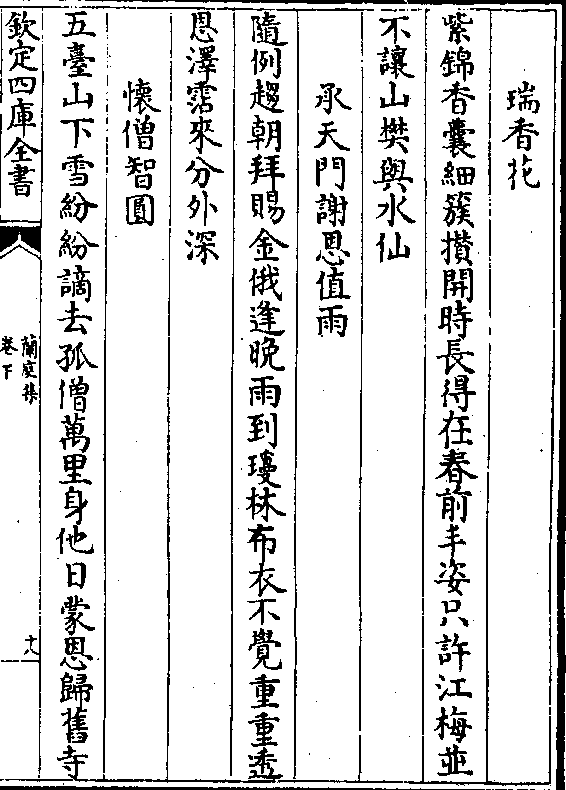 瑞香花
紫錦香囊細簇攅開時長得在春前丰姿只許江梅並
不讓山樊與水仙
承天門謝恩值雨
隨例趨朝拜賜金俄逢晚雨到瓊林布衣不覺重重透
恩澤霑來分外深
懷僧智圓
五臺山下雪紛紛謫去孤僧萬里身他日蒙恩歸舊寺
欽定四庫全書
蘭庭集
卷下
十八